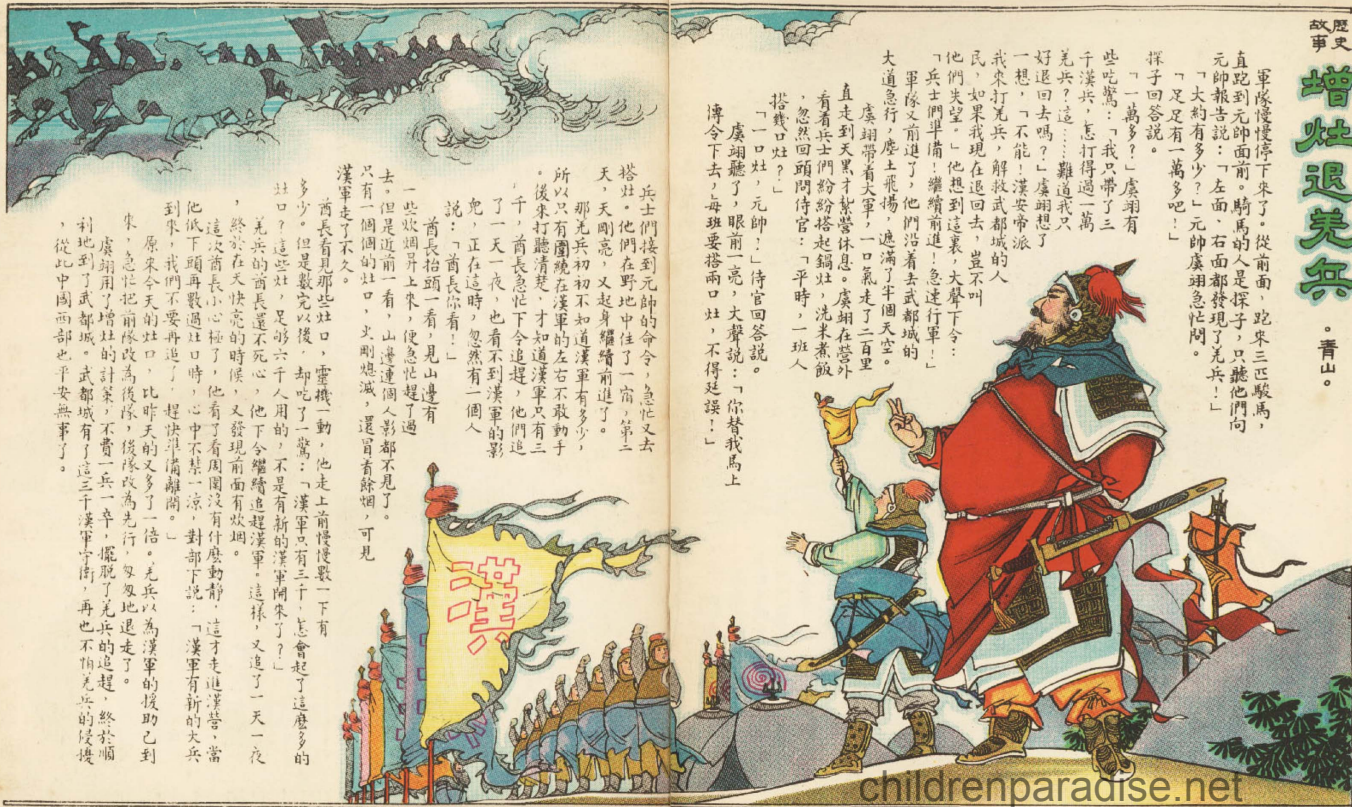 歷史故事
增灶退羌兵
•青山•
軍隊慢慢停下來了。從前面，跑來三匹駿馬，
直跑到元帥面前。騎馬的人是探子，只聽他們向
元帥報告説：「左面、右面都發現了羌兵！」
「大約有多少？」元帥虞翊急忙問。
「足足有一萬多吧！」
探子回答説。
「一萬多？」虞翊有
些吃驚：「我只帶了三
千漢兵，怎打得過一萬
羌兵？這……難道我只
好退回去嗎？」虞翊想了
一想，「不能！漢安帝派
我來打羌兵，解救武都城的人
民，如果我現在退回去，豈不叫
他們失望。」他想到這裏，大聲下令：
「兵士們準備！繼續前進！急速行軍！」
軍隊又前進了，他們沿着去武都城的
大道急行，塵土飛揚，遮滿了半個天空。
虞翊帶着大軍，一口氣走了二百里
直走到天黑才紮營休息。虞翊在營外
看着兵士們紛紛搭起鍋灶，洗米煮飯
，忽然回頭問侍官：「平時，一班人
搭幾口灶？」
「一口灶，元帥！」侍官回答説。
虞翊聽了，眼前一亮，大聲説：「你替我馬上
傳令下去，每班要搭兩口灶，不得廷誤！」
兵士們接到元帥的命令，急忙又去
搭灶。他們在野地中住了一宿，第二
天，天剛亮，又起身繼續前進了。
那羌兵初初不知道漢軍有多少，
所以只有圍繞在漢軍的左右不敢動手
。後來打聽清楚，才知道漢軍只有三
千，酋長急忙下令追趕，他們追
了一天一夜，也看不到漢軍的影
兒，正在這時，忽然有一個人
説：「酋長你看！」
酋長抬頭一看，見山邊有
一些炊烟昇上來，便急忙趕了過
去。但是近前一看，山邊連個人影都不見了。
只有一個個的灶口，火剛熄滅，還冒着餘烟，可見
漢軍走了不久。
酋長看見那些灶口，靈機一動，他走上前慢慢數一下有
多少，但是數完以後，却吃了一驚：「漢軍只有三千，怎會起了這麽多的
灶口？這些灶，足够六千人用的，不是有新的漢軍開來了？」
羌兵的酋長還不死心，他下令繼續追趕漢軍。這樣，又追了一天一夜
，終於在天快亮的時候，又發現前面有炊烟。
這次酋長小心極了，他看了看周圍沒有什麽動靜，這才走進漢營，當
他低下頭再數過灶口時，心中不禁一涼，對部下説：「漢軍有新的大兵
到來，我們不要再追了，趕快準備離開。」
原來今天的灶口，比昨天的又多了一倍。羌兵以為漢軍的援助已到
來，急忙把前隊改為後隊，後隊改為先行，匆匆地退走了。
虞翊用了增灶的計策，不費一兵一卒，擺脱了羌兵的追趕，終於順
利地到了武都城。武都城有了這三千漢軍守衛，再也不怕羌兵的侵擾
，從此中國西部也平安無事了。
漢
childrenparadise.net